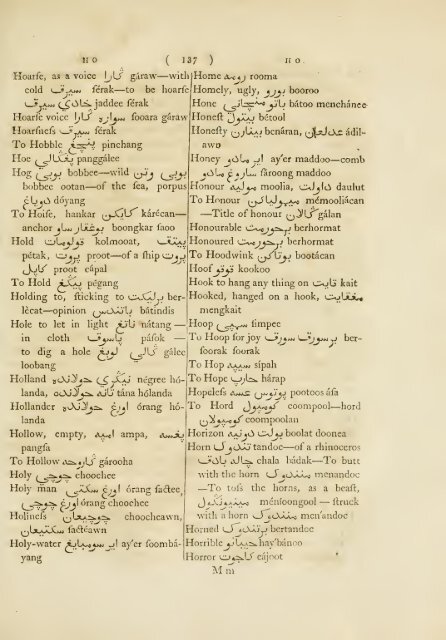 H O ( 137 ) H O
Hoarse, as a voice گارا gáraw—with
cold سيرق sérak—to be hoarse
جادي سيرق jaddee sérak
Hoarse voice سواره گارا sooara gáraw
Hoarseness سيرق sérak
To Hobble pinchang
Hoe panggálee
Hog بوبي bobbee—wild بوبي وتن
bobbee ootan—of the sea, porpus
دوياڠ dóyang
To Hoise, hankar kárécan—
anchor boongkar saoo
Hold kolmooat,
pétak, ڤروة proot—of a ship ڤروة
كاڤل proot cápal
To Hold pégang
Holding to, sticking to ber-
lècat—opinion bátindis
Hole to let in light nátang —
in cloth pások —
to dig a hole گالي لوبڠ gálee
loobang
Holland نڬري حولانده négree hó-
landa, تانه حولانده tána hólanda
Hollander اورڠ حولانده órang hó-
landa
Hollow, empty, امڤه ampa,
pangsa
To Hollow گاروحه gárooha
Holy چوچي choochee
Holy man اورڠ سكتي órang sactee,
اورڠ چوچي órang choochee
Holiness چوچيعان choocheawn,
سكتيعان sactéawn
Holy-water اير سومبايڠ ay'er soombá-
yang
Home رومه rooma
Homely, ugly, بورو booroo
Hone باتو bátoo menchánee
Honest بيتول bétool
Honesty بينارن benáran, عدلعان ádil-
awn
Honey اير مادو ay'er maddoo—comb
ساروڠ مادو sároong maddoo
Honour موليه moolia, داولت daulut
To Honour mémooliácan
—Title of honour گالن gálan
Honourable برحورمت berhormat
Honoured برحورمت berhormat
To Hoodwink بوتاكن bootácan
Hoof قوقو kookoo
Hook to hang any thing on كايت kait
Hooked, hanged on a hook,
mengkait
Hoop سمڤي simpee
To Hoop for joy برسورق سورق ber-
soorak soorak
To Hop سيڤه sípah
To Hope حارڤ hárap
Hopeless پوتوس اس pootoos ása
To Hord كومڤول coompool—hord
كومڤولن coompoolan
Horizon بولت دونيا boolat doonea
Horn تندوك tandoc—of a rhinoceros
چاله بادق chala bádak—To butt
with the horn منندوك menandoc
—To toss the horns, as a beast,
ménsoongool — struck
with a horn منندوك men'andoc
Horned برتندوك bertandoc
Horrible حيبانو hay'bánoo
Horror كاجوت cájoot
M m